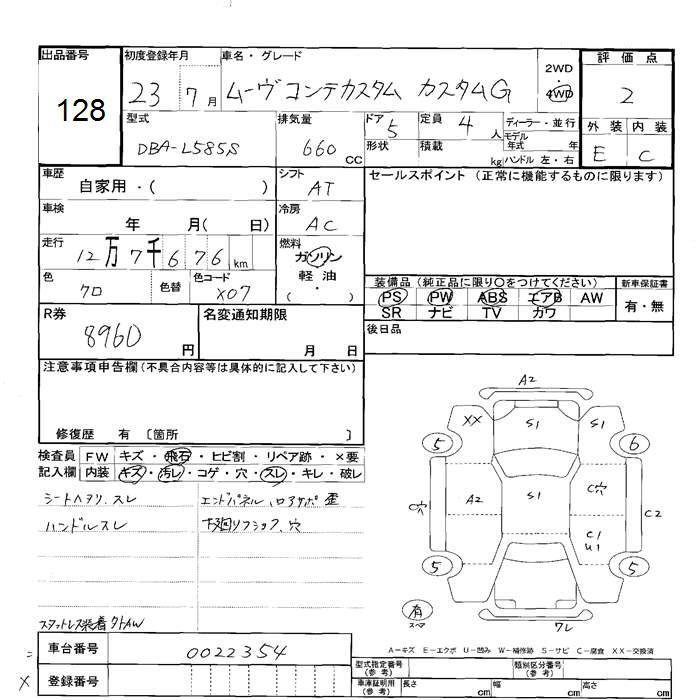 出品番号
128
初度登録年月
23年 7月
車名・グレード
ムーヴコンテカスタム カスタムG
2WD
4WD
評価点
2
外装 内装
E C
型式
DBA-L585S
排気量
660 CC
ドア 5
定員 4 人
ディーラー・並行
モデル
年式 年
形状
積載 kg
ハンドル 左・右
車歴
自家用・( )
シフト
AT
セールスポイント (正常に機能するものに限ります)
車検
年 月( 日)
冷房
AC
走行
12万7千676 km
燃料
ガソリン
軽油
・
( )
色
クロ
色替
色コード
X07
装備品 (純正品に限り○をつけてください)
PS PW ABS エアB AW
SR ナビ TV カワ
新車保証書
有・無
R券
8960 円
名変通知期限
月 日
後日品
注意事項申告欄 (不具合内容等は具体的に記入して下さい)
修復歴 有 〔箇所 〕
検査員
記入欄
FW キズ・飛石・ヒビ割・リペア跡・×要
内装 キズ・汚レ・コゲ・穴・スレ・キレ・破レ
シートヘタリ、スレ
ハンドルスレ
エンドパネル、ロアサポ 歪
スタットレス装着 タトAW
A2
XX S1 S1
5 6
C穴 A2 S1 C穴 C2
C1
U1
5 5
有
スペア
ワレ
A-キズ E-エクボ U-凹み W-補修跡 S-サビ C-腐食 XX-交換済
車台番号
0022354
登録番号
=
×
型式指定番号
(参考)
類別区分番号
(参考)
車庫証明用
(参考)
長さ cm
幅 cm
高さ cm